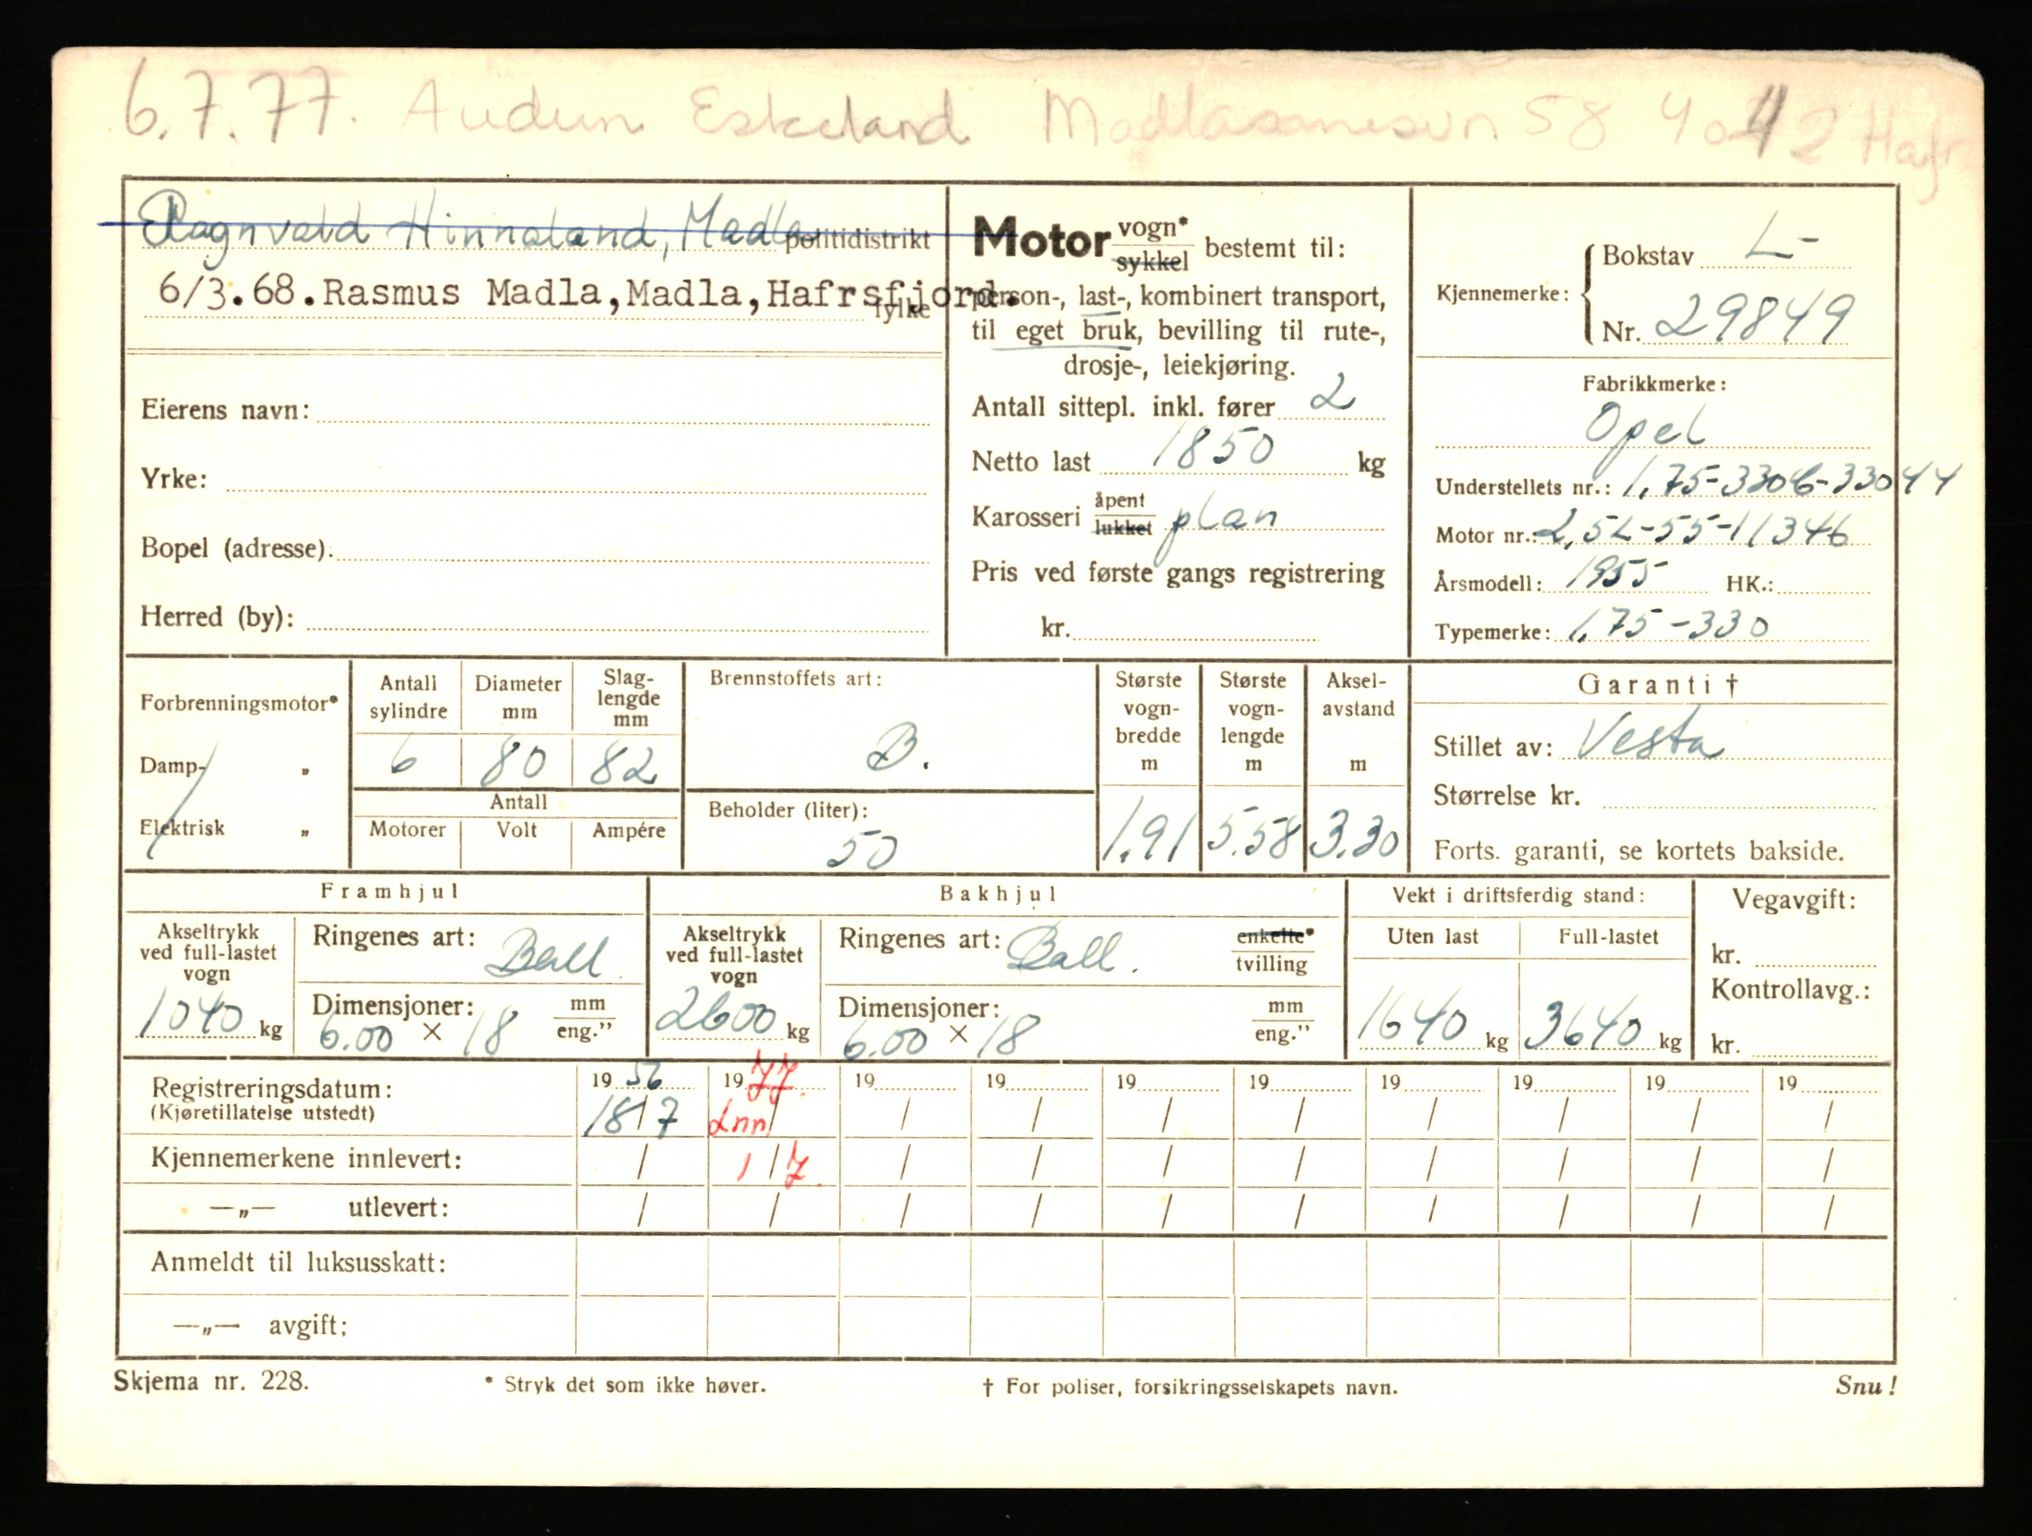 6.7.77. Audun Eskeland Madlasandnesvn 58 4042 Hafr
Ragnvald Hinnaland, Madla politidistrikt
6/3.68. Rasmus Madla, Madla, Hafrsfjord. fylke
Eierens navn:
Yrke:
Bopel (adresse):
Herred (by):
Motor vogn* sykkel bestemt til:
person-, last-, kombinert transport,
til eget bruk, bevilling til rute-,
drosje-, leiekjøring.
Antall sittepl. inkl. fører 2
Netto last 1850 kg
Karosseri åpent lukket plan
Pris ved første gangs registrering
kr.
Kjennemerke: Bokstav L-
Nr. 29849
Fabrikkmerke:
Opel
Understellets nr.: 1,75-3306-33044
Motor nr.: 2,5L-55-11346
Årsmodell: 1955 HK.:
Typemerke: 1,75-330
Forbrenningsmotor*
Damp- „
Elektrisk „
Antall sylindre 6
Diameter mm 80
Slaglengde mm 82
Antall
Motorer Volt Ampére
Brennstoffets art:
B.
Beholder (liter):
50
Største vognbredde m 1,91
Største vognlengde m 5.58
Akselavstand m 3.30
Garanti †
Stillet av: Vesta
Størrelse kr.
Forts. garanti, se kortets bakside.
Framhjul
Akseltrykk ved full-lastet vogn 1040 kg
Ringenes art: Ball.
Dimensjoner: 6.00 × 18 mm eng.”
Bakhjul
Akseltrykk ved full-lastet vogn 2600 kg
Ringenes art: Ball. enkelte* tvilling
Dimensjoner: 6.00 × 18 mm eng.”
Vekt i driftsferdig stand:
Uten last Full-lastet
1640 kg 3640 kg
Vegavgift:
kr.
Kontrollavg.:
kr.
Registreringsdatum: 19 56 19 77. 19 19 19 19 19 19 19 19
(Kjøretillatelse utstedt) 18/7 Inn / / / / / / / / /
Kjennemerkene innlevert: / 1/7. / / / / / / / /
—„— utlevert: / / / / / / / / / /
Anmeldt til luksusskatt:
—„— avgift:
Skjema nr. 228. * Stryk det som ikke høver. † For poliser, forsikringsselskapets navn. Snu!